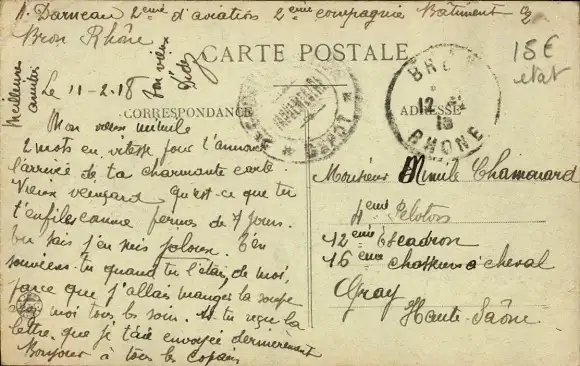 Darneau 2eme d'aviation 2eme compagnie Bâtiment
Bron Rhône
CARTE POSTALE
15E
état
Meilleures
amitiés
Ton vieux
Le 11-2.18
CORRESPONDANCE
ADRESSE
BRON
12
18
RHONE
DEPOT
Mon vieux mimile
2 mots en vitesse pour t'annoncer
l'arrivée de ta charmante carte.
Vieux veinard qu'est-ce que tu
t'enfiles comme fermes de 7 jours.
tu sais j'en suis jaloux. T'en
souviens-tu quand tu l'étais de moi,
parce que j'allais manger la soupe
moi tous les soirs. As tu reçu la
lettre que je t'aie envoyée dernièrement
Bonjour à tous les copains
Monsieur Mimile Chamouard
4eme Peloton
12eme Escadron
16eme chasseurs à cheval
Gray
Haute-Saône